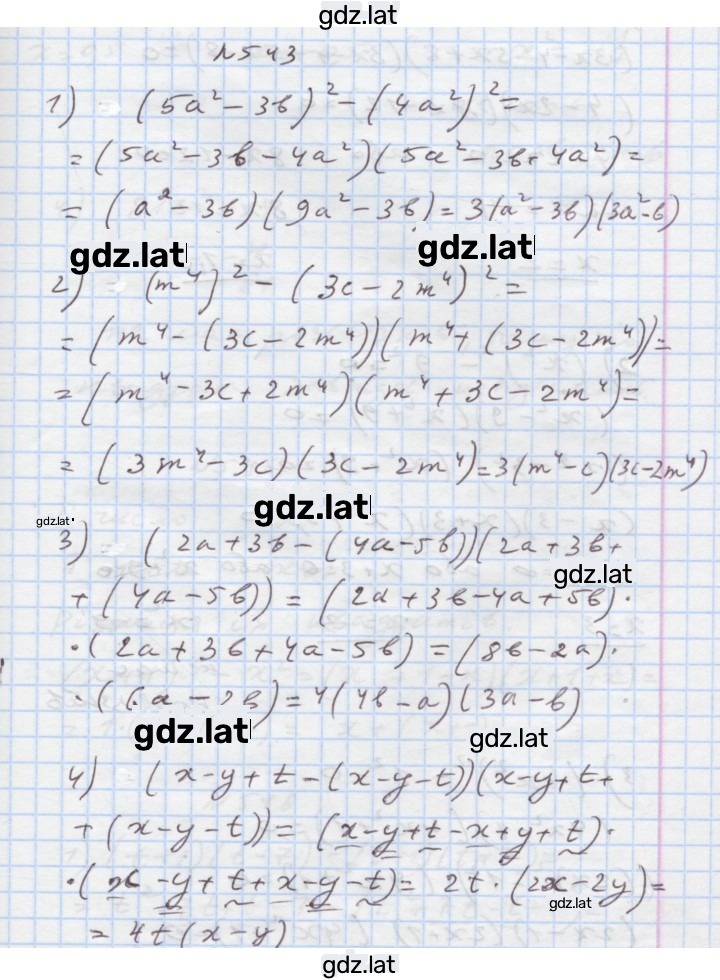 gdz.lat
№543
1) = (5a² - 3b)² - (4a²)² =
= (5a² - 3b - 4a²)(5a² - 3b + 4a²) =
= (a² - 3b)(9a² - 3b) = 3(a² - 3b)(3a² - b)
gdz.lat gdz.lat
2) = (m⁴)² - (3c - 2m⁴)² =
= (m⁴ - (3c - 2m⁴))(m⁴ + (3c - 2m⁴)) =
= (m⁴ - 3c + 2m⁴)(m⁴ + 3c - 2m⁴) =
= (3m⁴ - 3c)(3c - 2m⁴) = 3(m⁴ - c)(3c - 2m⁴)
gdz.lat
gdz.lat
3) = (2a + 3b - (4a - 5b))(2a + 3b +
gdz.lat
+ (4a - 5b)) = (2a + 3b - 4a + 5b) ·
· (2a + 3b + 4a - 5b) = (8b - 2a) ·
· (6a - 2b) = 4(4b - a)(3a - b)
gdz.lat gdz.lat
4) = (x - y + t - (x - y - t))(x - y + t +
+ (x - y - t)) = (x - y + t - x + y + t) ·
· (x - y + t + x - y - t) = 2t · (2x - 2y) =
gdz.lat
= 4t(x - y)
gdz.lat